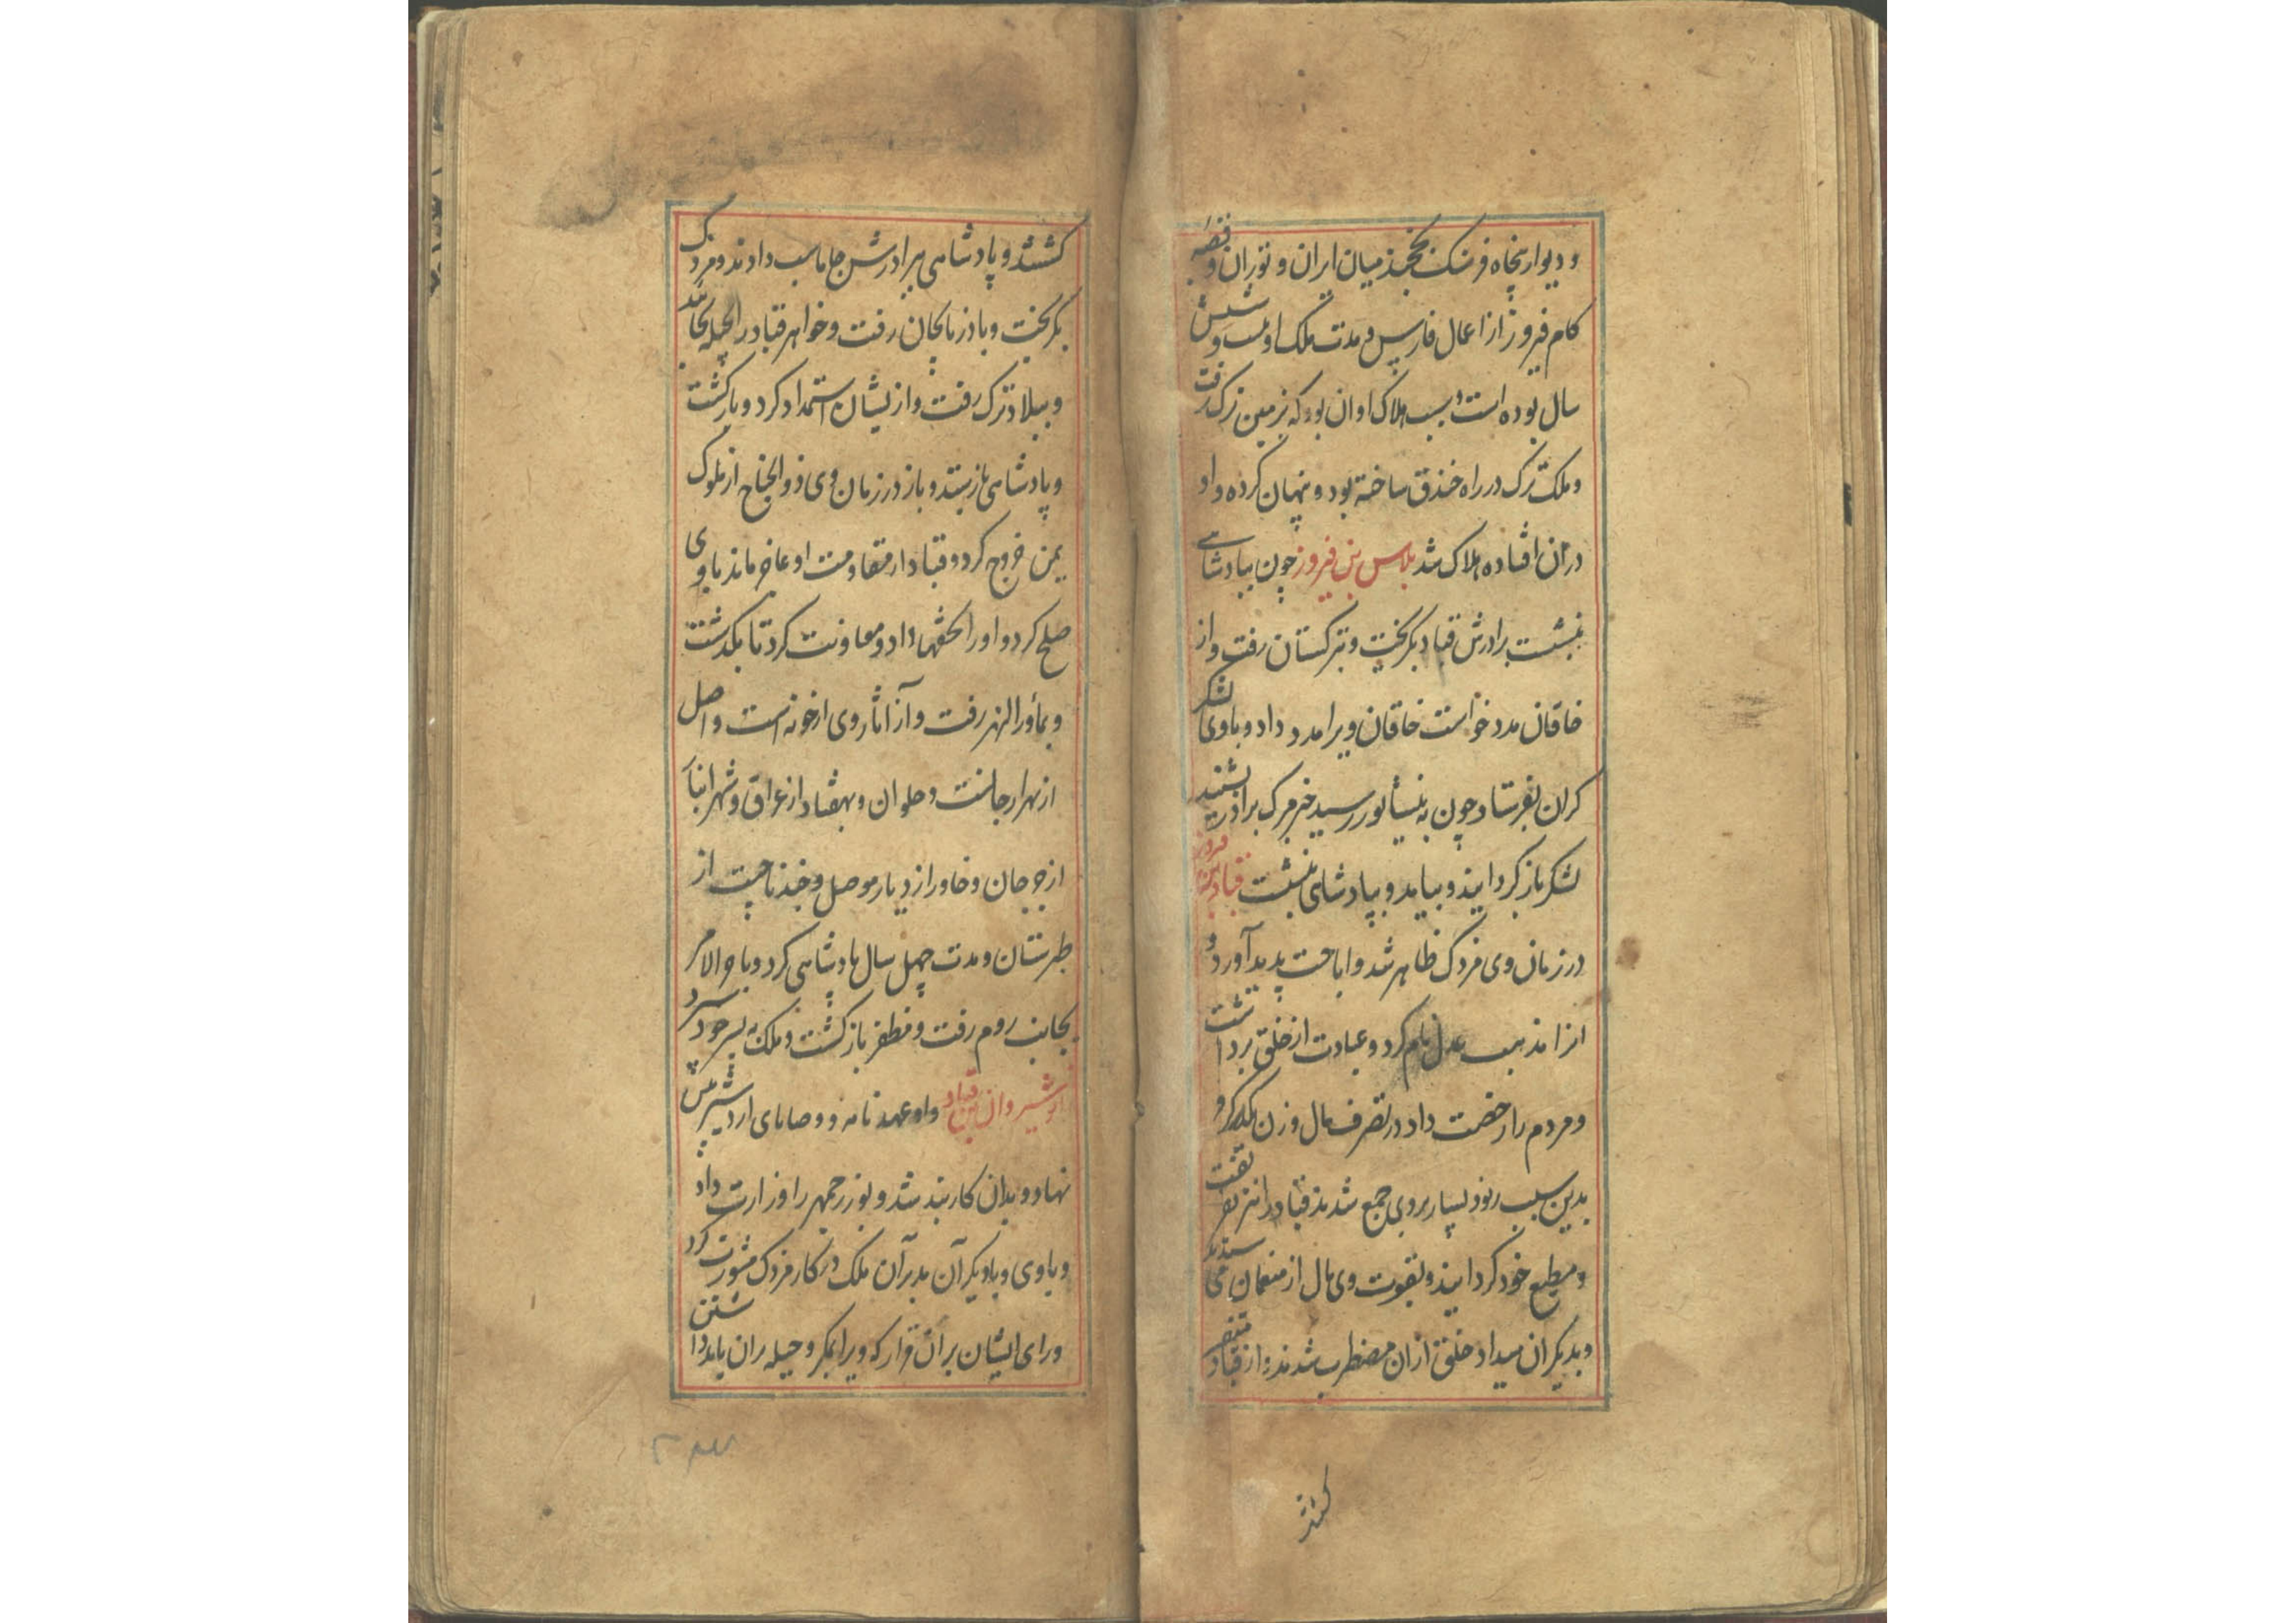 و دیوار پنجاه فرسنک بخجند میان ایران و توران و قصبه
کام فیروز از اعمال فارس و مدت ملک او بیست و شیش
سال بوده است و سبب هلاک او ان بود که بزمین ترک رفت
و ملک ترک در راه خندق ساخته بود و پنهان کرده و او
دران افتاده هلاک شد بلاس بن فیروز چون بپادشاهی
بنشست برادرش قباد بگریخت و بترکستان رفت و از
خاقان مدد خواست خاقان ویرا مدد داد و باوی لشکر
کران بفرستاد چون به نیسابور رسید خبر مرک برادر بشنید
لشکر باز کردانید و بیامد و بپادشاهی بنشست قباد بن فیروز
در زمان وی مزدک ظاهر شد و اباحت پدید آورد و
انرا مذهب عدل نام کرد و عبادت از خلق برداشت
و مردم را رخصت داد در تصرف مال و زن یکدیکر و
بدین سبب رنود بسیار بروی جمع شدند قباد را نیز بفریفت
و مطیع خود کردانید و بقوت وی مال از منعمان می ستد
و بدیکران میداد خلق ازان مضطرب شدند و از قباد متنفر
کشتند
کشتند و پادشاهی ببرادرش جاماسب دادند و مزدک
بگریخت و باذربایجان رفت و خواهر قباد را بحیله
و ببلاد ترک رفت و ازیشان استمداد کرد و باز کشت
و پادشاهی باز ستد و باز در زمان وی ذوالجناح از ملوک
یمن خروج کرد و قباد از مقاومت او عاجز ماند باوی
صلح کرد و او را تحفها داد و معاونت کرد تا بگذشت
و بماورالنهر رفت و از اثار وی ارخونه است و اصل
از بهر ارجانست و حلوان و بهقباد از عراق و شهر انبار
از جرجان و خاور از دیار موصل و چند ناحیت از
طبرستان و مدت چهل سال پادشاهی کرد و باخرالامر
بجانب روم رفت و مظفر باز کشت و ملک به پسر خود سپرد
انوشیروان بن قباد و او عهد نامه و وصایای اردشیر پیش
نهاد و بدان کاربند شد و بوزرجمهر را وزارت داد
و باوی و بادیکر آن مدبرآن ملک در کار مزدک مشورت کرد
و رای ایشان بران قرار که ویرا بمکر و حیله بران باید داشتن